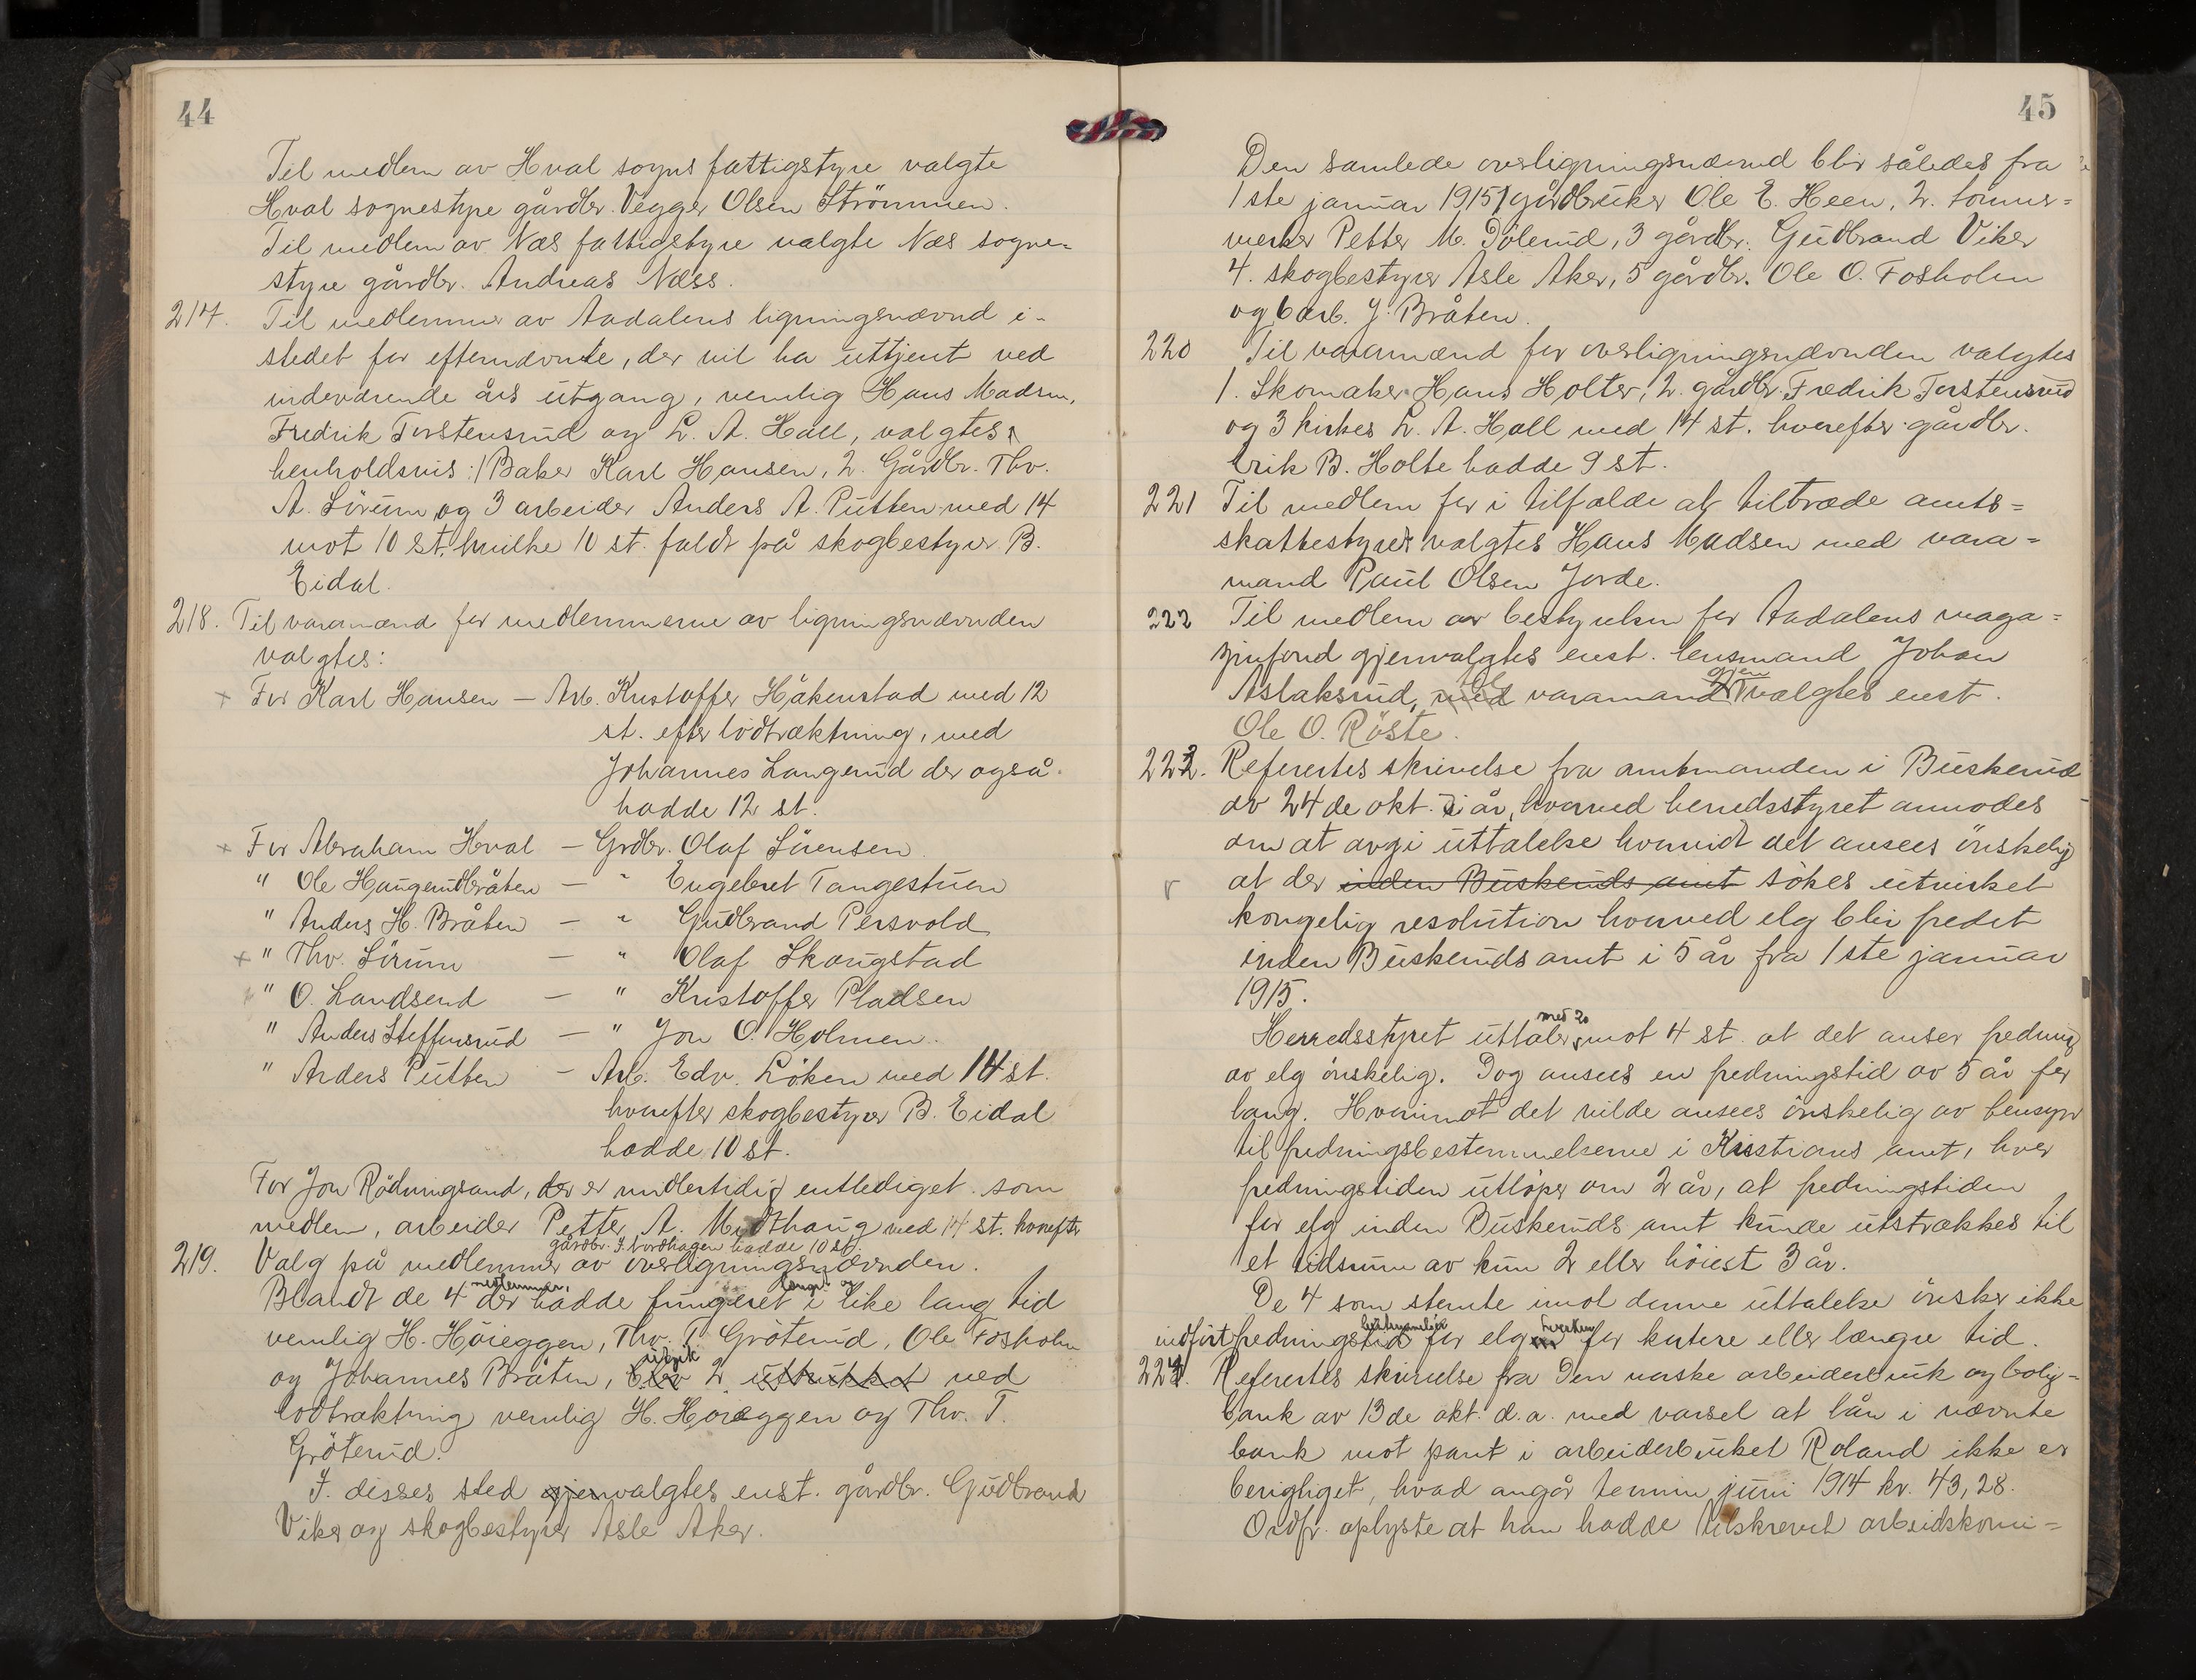 44
Til medlem av Hval sogns fattigstyre valgte
Hval sognestyre gårdbr. Vegger Olsen Strömmen.
Til medlem av Næs fattigstyre valgte Næs sogne-
styre gårdbr. Andreas Næss.
217. Til medlemmer av Aadalens ligningsnævnd i-
stedet for efternævnte, der vil ha uttjent ved
indeværende års utgang, nemlig Hans Madsen,
Fredrik Torstensrud og L. A. Hall, valgtes
henholdsvis: 1 Baker Karl Hansen, 2. Gårdbr. Thv.
A. Sörum og 3 arbeider Anders A. Putten med 14
mot 10 st. hvilke 10 st. faldt på skogbestyrer B.
Eidal.
218. Til varamænd for medlemmerne av ligningsnævnden
valgtes:
For Karl Hansen — Arb. Kristoffer Håkenstad med 12
st. efter lodtrækning, med
Johannes Langerud der også
hadde 12 st.
For Abraham Hval — Grdbr. Olaf Sörensen
" Ole Haugerudbråten — " Engebret Tangestuen
" Anders H. Bråten — " Gudbrand Persvold
" Thv. Sörum — " Olaf Skaugstad
" O. Landsend — " Kristoffer Pladsen
" Anders Steffensrud — " Jon O. Holmen.
" Anders Putten — Arb. Edv. Löken med 14 st.
hvorefter skogbestyrer B. Eidal
hadde 10 st.
For Jon Rödningsand, der er midlertidig entlediget som
medlem, arbeider Petter A. Midthaug med 14 st. hvorefter
gårdbr. J. Nordhagen hadde 10 st.
219. Valg på medlemmer av overligningsnævnden.
Blandt de 4 medlemmer, der hadde fungeret længst og i like lang tid
nemlig H. Höieggen, Thv. T. Gröterud, Ole Fosholm
og Johannes Bråten, blev utgik 2 uttrukket ved
lodtrækning nemlig H. Höieggen og Thv. T.
Gröterud.
I disses sted gjenvalgtes enst. gårdbr. Gudbrand
Viker og skogbestyrer Asle Aker.
45
Den samlede overligningsnævnd blir således fra
1ste januar 1915 1 gårdbruker Ole E. Heen, 2. tömmer=
merker Petter M. Dölerud, 3 gårdbr. Gudbrand Viker
4. skogbestyrer Asle Aker, 5 gårdbr. Ole O. Fosholm
og 6 arb. J. Bråten.
220 Til varamænd for overligningsnævnden valgtes
1. Skomaker Hans Holter, 2. gårdbr. Fredrik Torstensrud
og 3 kirkes. L. A. Hall med 14 st. hvorefter gårdbr.
Erik B. Holte hadde 9 st.
221 Til medlem for i tilfælde at tiltræde amts=
skattestyret valgtes Hans Madsen med vara=
mand Paul Olsen Jorde.
222 Til medlem av bestyrelsen for Aadalens maga=
zinfond gjenvalgtes enst. lensmand Johan
Aslaksrud, med til varamand gjenvalgtes enst.
Ole O. Röste.
223. Referertes skrivelse fra amtmanden i Buskerud
av 24de okt. i år, hvorved herredsstyret anmodes
om at avgi uttalelse hvorvidt det ansees önskelig
at der inden Buskeruds amt sökes utvirket
kongelig resolution hvorved elg blir fredet
inden Buskeruds amt i 5 år fra 1ste januar
1915.
Herredsstyret uttaler med 20 mot 4 st. at det anser fredning
av elg önskelig. Dog ansees en fredningstid av 5 år for
lang. Hvorimot det vilde ansees önskelig av hensyn
til fredningsbestemmelserne i Kristians amt, hvor
fredningstiden utlöper om 2 år, at fredningstiden
for elg inden Buskeruds amt kunde utstrækkes til
et tidsrum av kun 2 eller höiest 3 år.
De 4 som stemte imot denne uttalelse önsker ikke
indfört fredningsbestemmelser for elg hverken for kortere eller længre tid.
224. Referertes skrivelse fra Den norske arbeiderbruk og bolig=
bank av 13de okt. d.a. med varsel at lån i nævnte
bank mot pant i arbeiderbruket Roland ikke er
berigtiget, hvad angår termin juni 1914 kr. 43,28.
Ordf. oplyste at han hadde tilskrevet arbeidskomi=